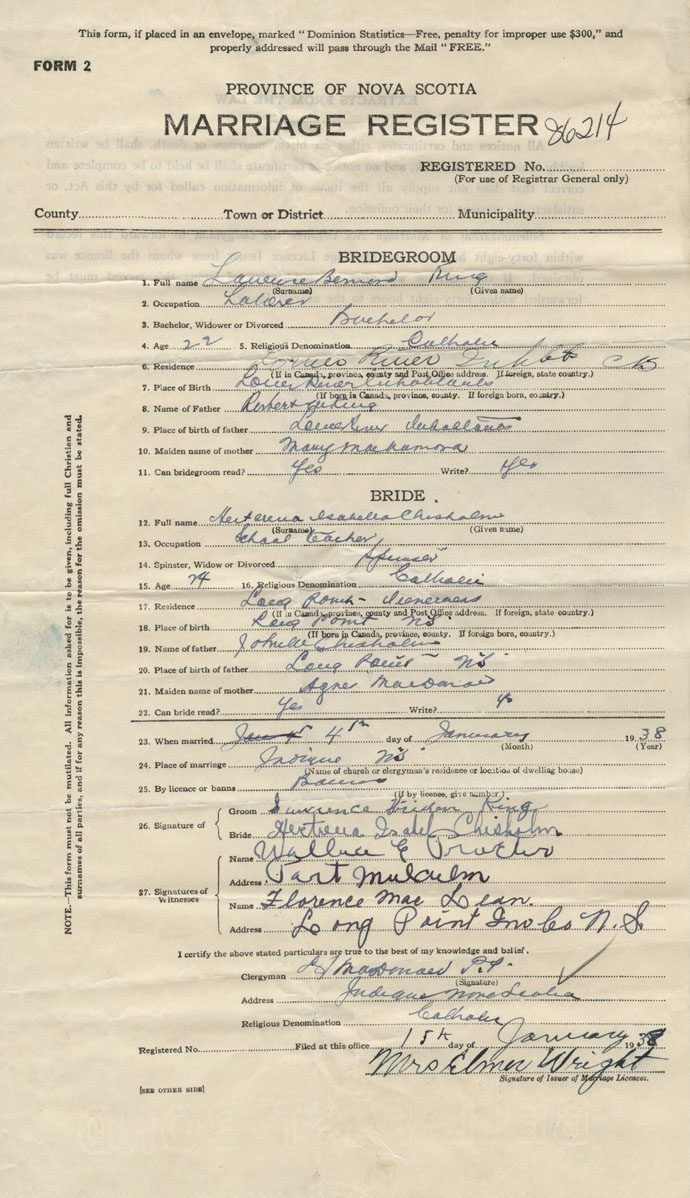 This form, if placed in an envelope, marked " Dominion Statistics—Free, penalty for improper use $300," and
properly addressed will pass through the Mail "FREE."
FORM 2
PROVINCE OF NOVA SCOTIA
MARRIAGE REGISTER 86214
REGISTERED No.
(For use of Registrar General only)
County Town or District Municipality
BRIDEGROOM
1. Full name Laurence Bernard King
(Surname) (Given name)
2. Occupation Laborer
3. Bachelor, Widower or Divorced Bachelor
4. Age 22 5. Religious Denomination Catholic
6. Residence River Inhbts CB
(If in Canada, province, county and Post Office address. If foreign, state country.)
7. Place of Birth River Inhabitants
(If born in Canada, province, county. If foreign born, country.)
8. Name of Father Robert King
9. Place of birth of father River Inhabitants
10. Maiden name of mother Mary
11. Can bridegroom read? Yes Write? Yes
BRIDE.
12. Full name Isabella Chisholm
(Surname) (Given name)
13. Occupation School Teacher
14. Spinster, Widow or Divorced Spinster
15. Age 24 16. Religious Denomination Catholic
17. Residence Long Point - Inverness
(If in Canada, province, county and Post Office address. If foreign, state country.)
18. Place of birth Long Point NS
(If born in Canada, province, county. If foreign born, country.)
19. Name of father Chisholm
20. Place of birth of father Long Point - NS
21. Maiden name of mother Agnes MacDonald
22. Can bride read? Yes Write? Yes
23. When married 4th day of January 1938
(Month) (Year)
24. Place of marriage Judique NS
(Name of church or clergyman's residence or location of dwelling house)
25. By licence or banns Banns
(If by licence, give number)
26. Signature of { Groom Lawrence King
Bride Isabel Chisholm
27. Signatures of Witnesses { Name Wallace E Proctor
Address Port Mulculm
Name Florence Mac Lean.
Address Long Point Inv Co N.S.
I certify the above stated particulars are true to the best of my knowledge and belief.
Clergyman MacDonald P.P.
(Signature)
Address Judique Nova Scotia
Religious Denomination Catholic
Registered No. Filed at this office 15th day of January 1938
Mrs Elmer Wright
Signature of Issuer of Marriage Licences.
[SEE OTHER SIDE]
NOTE.—This form must not be mutilated. All information asked for is to be given, including full Christian and
surnames of all parties, and if for any reason this is impossible, the reason for the omission must be stated.